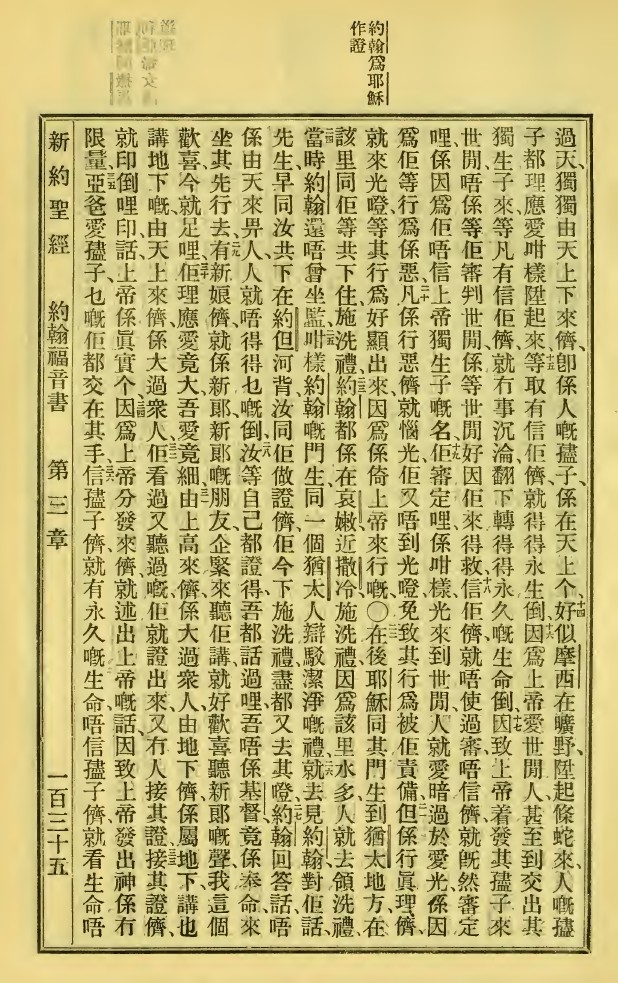 約翰爲耶穌
作證
過天、獨獨由天上下來儕、卽係人嘅孻子、係在天上个、十四好似摩西在曠野、陞起條蛇來、人嘅孻
子都理應愛咁樣陞起來、十五等取有信佢儕、就得得永生倒、十六因爲上帝愛世間人、甚至到交出其
獨生子來、等凡有信佢儕、就冇事沉淪、翻下轉得得永久嘅生命倒、十七因致上帝着發其孻子來
世間、唔係等佢審判世間、係等世間好因佢來得救、十八信佢儕、就唔使過審、唔信儕、就旣然審定
哩、係因爲佢唔信上帝獨生子嘅名、十九佢審定哩係咁樣、光來到世間、人就愛暗過於愛光、係因
爲佢等行爲係惡、二十凡係行惡儕、就惱光、佢又唔到光嶝、免致其行爲被佢責備、二一但係行眞理儕、
就來光嶝、等其行爲好顯出來、因爲係倚上帝來行嘅、〇二二在後耶穌同其門生到猶太地方、在
該里同佢等共下住、施洗禮、二三約翰都係在哀嫩近撒冷施洗禮、因爲該里水多、人就去領洗禮、
二四當時約翰還唔曾坐監、二五咁樣約翰嘅門生、同一個猶太人辯駁潔淨嘅禮、二六就去見約翰對佢話、
先生、早同汝共下在約但河背、汝同佢做證儕、佢今下施洗禮、盡都又去其嶝、二七約翰回答話、唔
係由天來畀人、人就唔得得乜嘅倒、二八汝等自己都證得吾都話過哩、吾唔係基督、竟係奉命來
坐其先行去、二九有新娘儕、就係新郞、新郞嘅朋友、企緊來聽佢講、就好歡喜聽新郞嘅聲、我這個
歡喜、今就足哩、三十佢理應愛竟大、吾愛竟細、三一由上高來儕、係大過衆人、由地下儕、係屬地下、講也
講地下嘅、由天上來儕、係大過衆人、三二佢看過又聽過嘅、佢就證出來、又冇人接其證、三三接其證儕、
就印倒哩、印話上帝係眞實个、三四因爲上帝分發來儕、就述出上帝嘅話、因致上帝發出神係冇
限量、三五亞爸愛孻子、乜嘅佢都交在其手、三六信孻子儕、就有永久嘅生命、唔信孻子儕、就看生命唔
新約聖經 約翰福音書 第三章 一百三十五